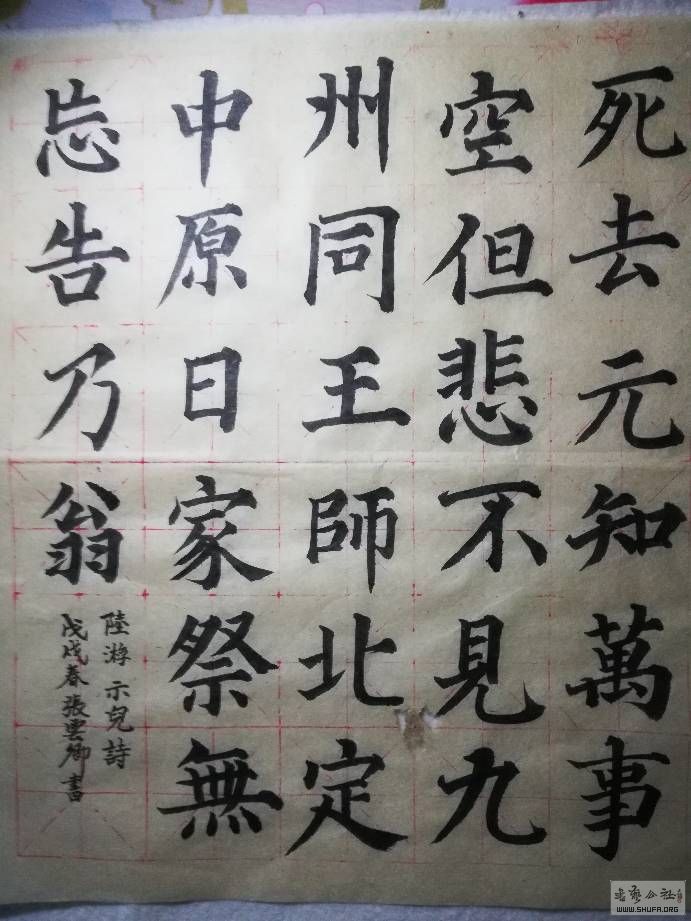 死去元知萬事
空但悲不見九
州同王師北定
中原日家祭無
忘告乃翁
陸游示兒詩
戊戌春張雲卿書
書藝公社
WWW.SHUFA.ORG